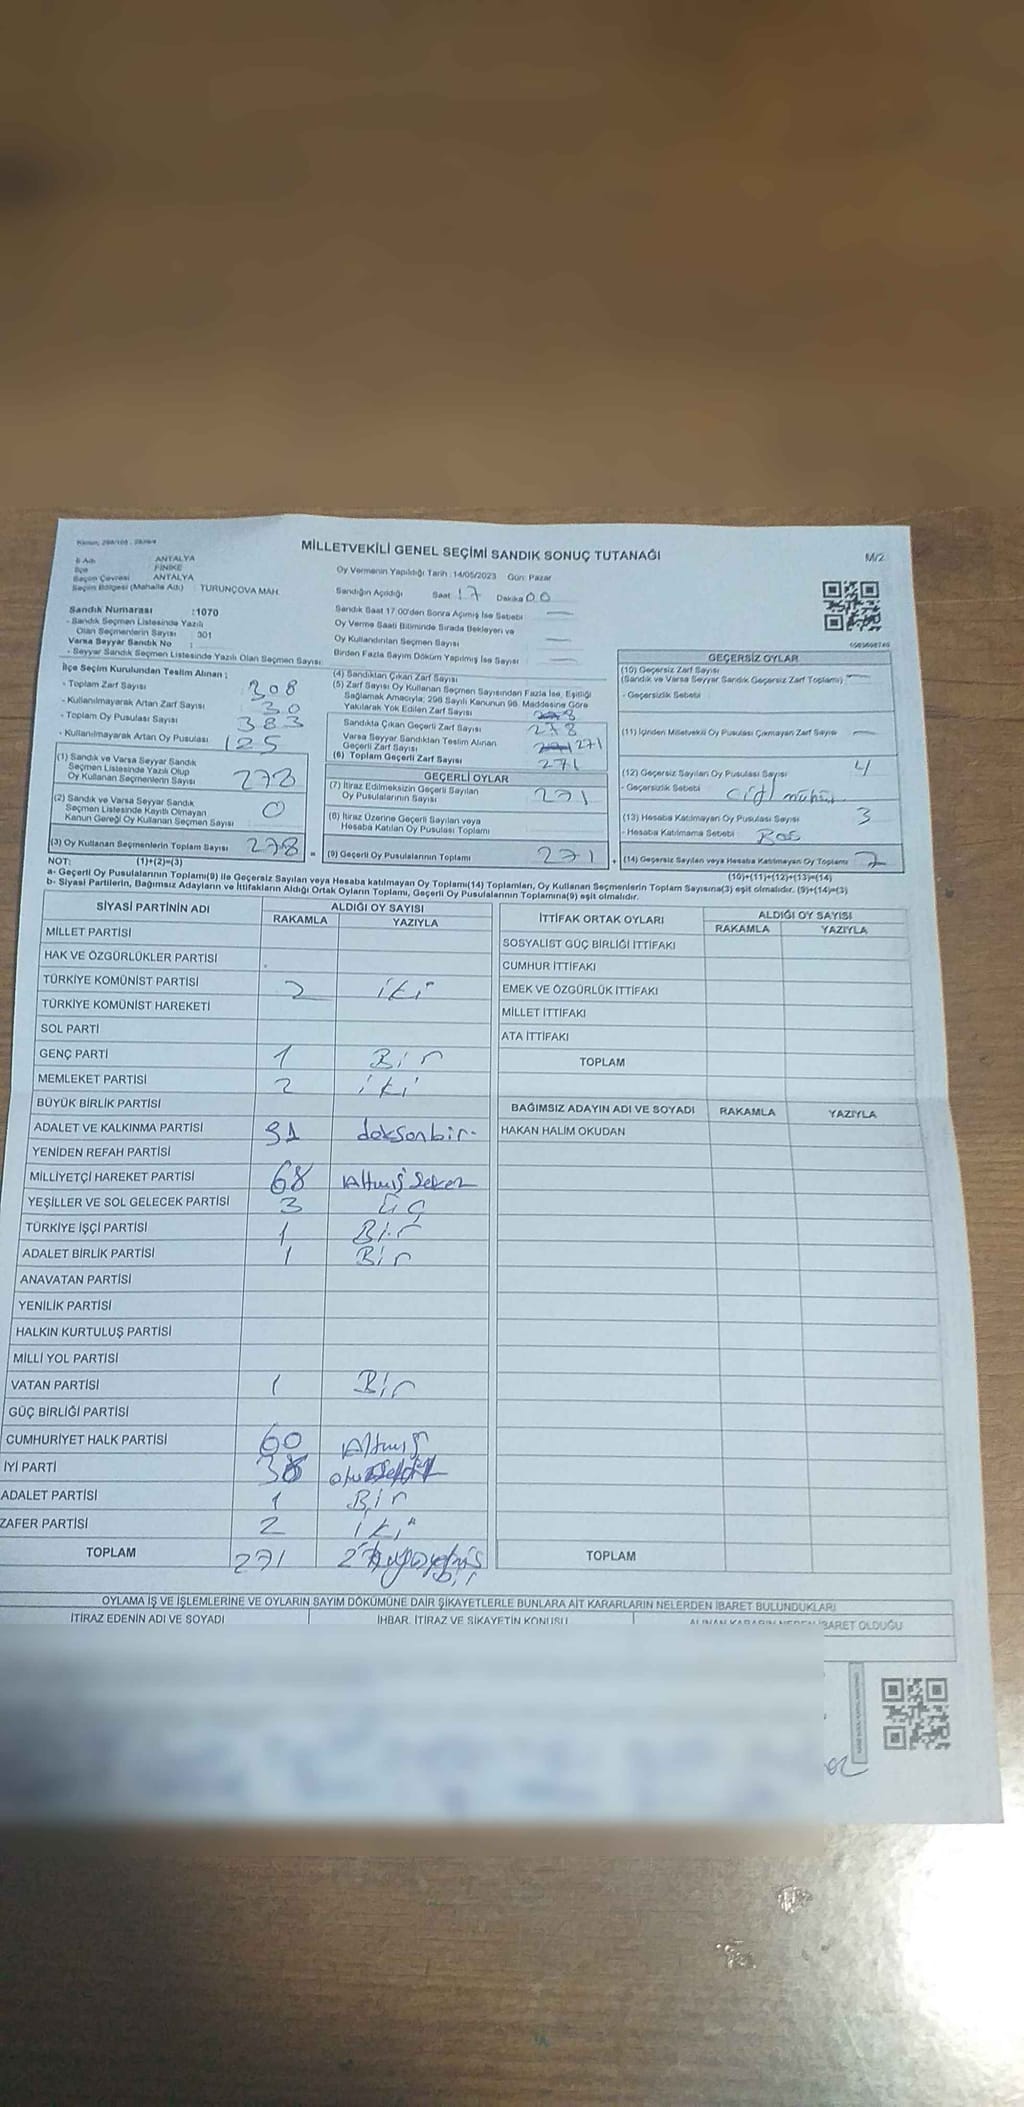 MİLLETVEKİLİ GENEL SEÇİMİ SANDIK SONUÇ TUTANAĞI
M/2
İl Adı ANTALYA
İlçe FİNİKE
Seçim Çevresi ANTALYA
Seçim Bölgesi (Mahalle Adı) : TURUNÇOVA MAH.
Sandık Numarası :1070
- Sandık Seçmen Listesinde Yazılı
Olan Seçmenlerin Sayısı : 301
Varsa Seyyar Sandık No :
- Seyyar Sandık Seçmen Listesinde Yazılı Olan Seçmen Sayısı:
Oy Vermenin Yapıldığı Tarih :14/05/2023 Gün: Pazar
Sandığın Açıldığı Saat 17 Dakika 00
Sandık Saat 17:00'den Sonra Açılmış İse Sebebi —
Oy Verme Saati Bitiminde Sırada Bekleyen ve
Oy Kullandırılan Seçmen Sayısı —
Birden Fazla Sayım Döküm Yapılmış İse Sayısı —
İlçe Seçim Kurulundan Teslim Alınan :
- Toplam Zarf Sayısı 308
- Kullanılmayarak Artan Zarf Sayısı 30
- Toplam Oy Pusulası Sayısı 383
- Kullanılmayarak Artan Oy Pusulası 125
(1) Sandık ve Varsa Seyyar Sandık
Seçmen Listesinde Yazılı Olup
Oy Kullanan Seçmenlerin Sayısı 278
(2) Sandık ve Varsa Seyyar Sandık
Seçmen Listesinde Kayıtlı Olmayan
Kanun Gereği Oy Kullanan Seçmen Sayısı 0
(3) Oy Kullanan Seçmenlerin Toplam Sayısı 278 =
(4) Sandıktan Çıkan Zarf Sayısı
(5) Zarf Sayısı Oy Kullanan Seçmen Sayısından Fazla İse, Eşitliği
Sağlamak Amacıyla; 298 Sayılı Kanunun 98. Maddesine Göre
Yakılarak Yok Edilen Zarf Sayısı
Sandıkta Çıkan Geçerli Zarf Sayısı 278
Varsa Seyyar Sandıktan Teslim Alınan
Geçerli Zarf Sayısı 271
(6) Toplam Geçerli Zarf Sayısı 271
GEÇERLİ OYLAR
(7) İtiraz Edilmeksizin Geçerli Sayılan
Oy Pusulalarının Sayısı 271
(8) İtiraz Üzerine Geçerli Sayılan veya
Hesaba Katılan Oy Pusulası Toplamı
(9) Geçerli Oy Pusulalarının Toplamı 271 +
GEÇERSİZ OYLAR
(10) Geçersiz Zarf Sayısı
(Sandık ve Varsa Seyyar Sandık Geçersiz Zarf Toplamı) —
- Geçersizlik Sebebi
(11) İçinden Milletvekili Oy Pusulası Çıkmayan Zarf Sayısı —
(12) Geçersiz Sayılan Oy Pusulası Sayısı 4
- Geçersizlik Sebebi
(13) Hesaba Katılmayan Oy Pusulası Sayısı 3
- Hesaba Katılmama Sebebi :
(14) Geçersiz Sayılan veya Hesaba Katılmayan Oy Toplamı
NOT: (1)+(2)=(3)
(10)+(11)+(12)+(13)=(14)
a- Geçerli Oy Pusulalarının Toplamı(9) ile Geçersiz Sayılan veya Hesaba katılmayan Oy Toplamı(14) Toplamları, Oy Kullanan Seçmenlerin Toplam Sayısına(3) eşit olmalıdır. (9)+(14)=(3)
b- Siyasi Partilerin, Bağımsız Adayların ve İttifakların Aldığı Ortak Oyların Toplamı, Geçerli Oy Pusulalarının Toplamına(9) eşit olmalıdır.
SİYASİ PARTİNİN ADI ALDIĞI OY SAYISI
RAKAMLA YAZIYLA
MİLLET PARTİSİ
HAK VE ÖZGÜRLÜKLER PARTİSİ
TÜRKİYE KOMÜNİST PARTİSİ 2 iki
TÜRKİYE KOMÜNİST HAREKETİ
SOL PARTİ
GENÇ PARTİ 1 Bir
MEMLEKET PARTİSİ 2 iki
BÜYÜK BİRLİK PARTİSİ
ADALET VE KALKINMA PARTİSİ 91 doksanbir
YENİDEN REFAH PARTİSİ
MİLLİYETÇİ HAREKET PARTİSİ 68 Altmış Sekez
YEŞİLLER VE SOL GELECEK PARTİSİ 3 üç
TÜRKİYE İŞÇİ PARTİSİ 1 Bir
ADALET BİRLİK PARTİSİ 1 Bir
ANAVATAN PARTİSİ
YENİLİK PARTİSİ
HALKIN KURTULUŞ PARTİSİ
MİLLİ YOL PARTİSİ
VATAN PARTİSİ 1 Bir
GÜÇ BİRLİĞİ PARTİSİ
CUMHURİYET HALK PARTİSİ 60 Altmış
İYİ PARTİ
ADALET PARTİSİ 1 Bir
ZAFER PARTİSİ 2 iki
TOPLAM 271
İTTİFAK ORTAK OYLARI ALDIĞI OY SAYISI
RAKAMLA YAZIYLA
SOSYALİST GÜÇ BİRLİĞİ İTTİFAKI
CUMHUR İTTİFAKI
EMEK VE ÖZGÜRLÜK İTTİFAKI
MİLLET İTTİFAKI
ATA İTTİFAKI
TOPLAM
BAĞIMSIZ ADAYIN ADI VE SOYADI RAKAMLA YAZIYLA
HAKAN HALİM OKUDAN
TOPLAM
OYLAMA İŞ VE İŞLEMLERİNE VE OYLARIN SAYIM DÖKÜMÜNE DAİR ŞİKAYETLERLE BUNLARA AİT KARARLARIN NELERDEN İBARET BULUNDUKLARI
İTİRAZ EDENİN ADI VE SOYADI İHBAR, İTİRAZ VE ŞİKAYETİN KONUSU İBARET OLDUĞU